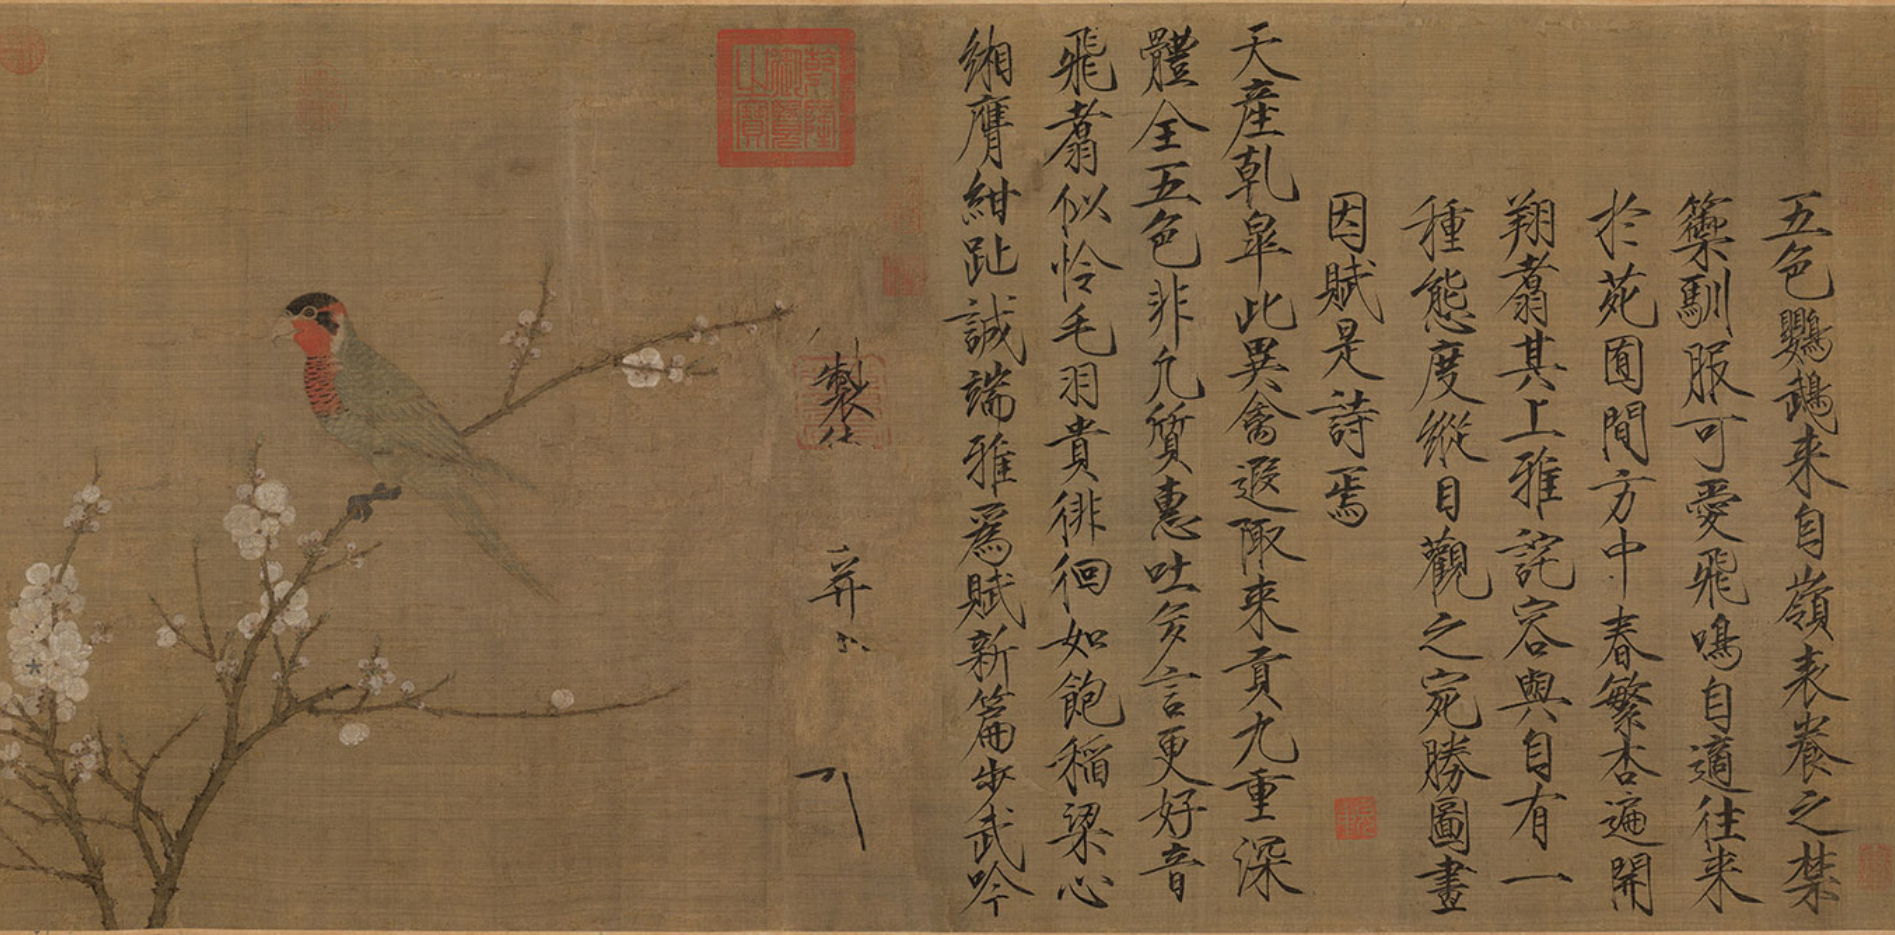 五色鸚鵡来自嶺表養之禁
籞馴服可愛飛鳴自適往来
於苑囿間方中春繁杏遍開
翔翥其上雅詫容與自有一
種態度縱目觀之宛勝圖畫
因賦是詩焉
天産乾皐此異禽遐陬来貢九重深
體全五色非凢質惠吐多言更好音
飛翥似怜毛羽貴徘徊如飽稲粱心
緗膺紺趾誠端雅爲賦新篇步武吟
製
乾隆御覽之寶